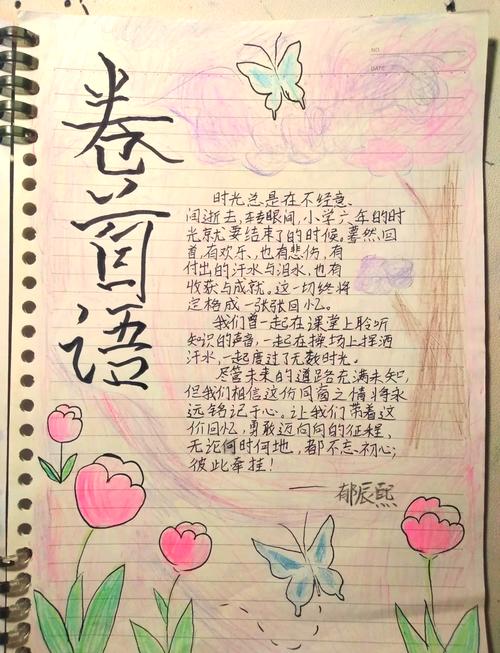 卷首语
NO.
DATE
时光总是在不经意、
间逝去,转眼间,小学六年的时
光就要结束了的时候。蓦然回
首,有欢乐,也有悲伤,有
付出的汗水与泪水,也有
收获与成就。这一切终将
定格成一张张回忆。
我们曾一起在课堂上聆听
知识的声音,一起在操场上挥洒
汗水,一起度过了无数时光。
尽管未来的道路充满未知,
但我们相信这份同窗之情将永
远铭记于心。让我们带着这
份回忆,勇敢迈向向的征程,
无论何时何地,都不忘初心;
彼此牵挂!
——郁辰熙